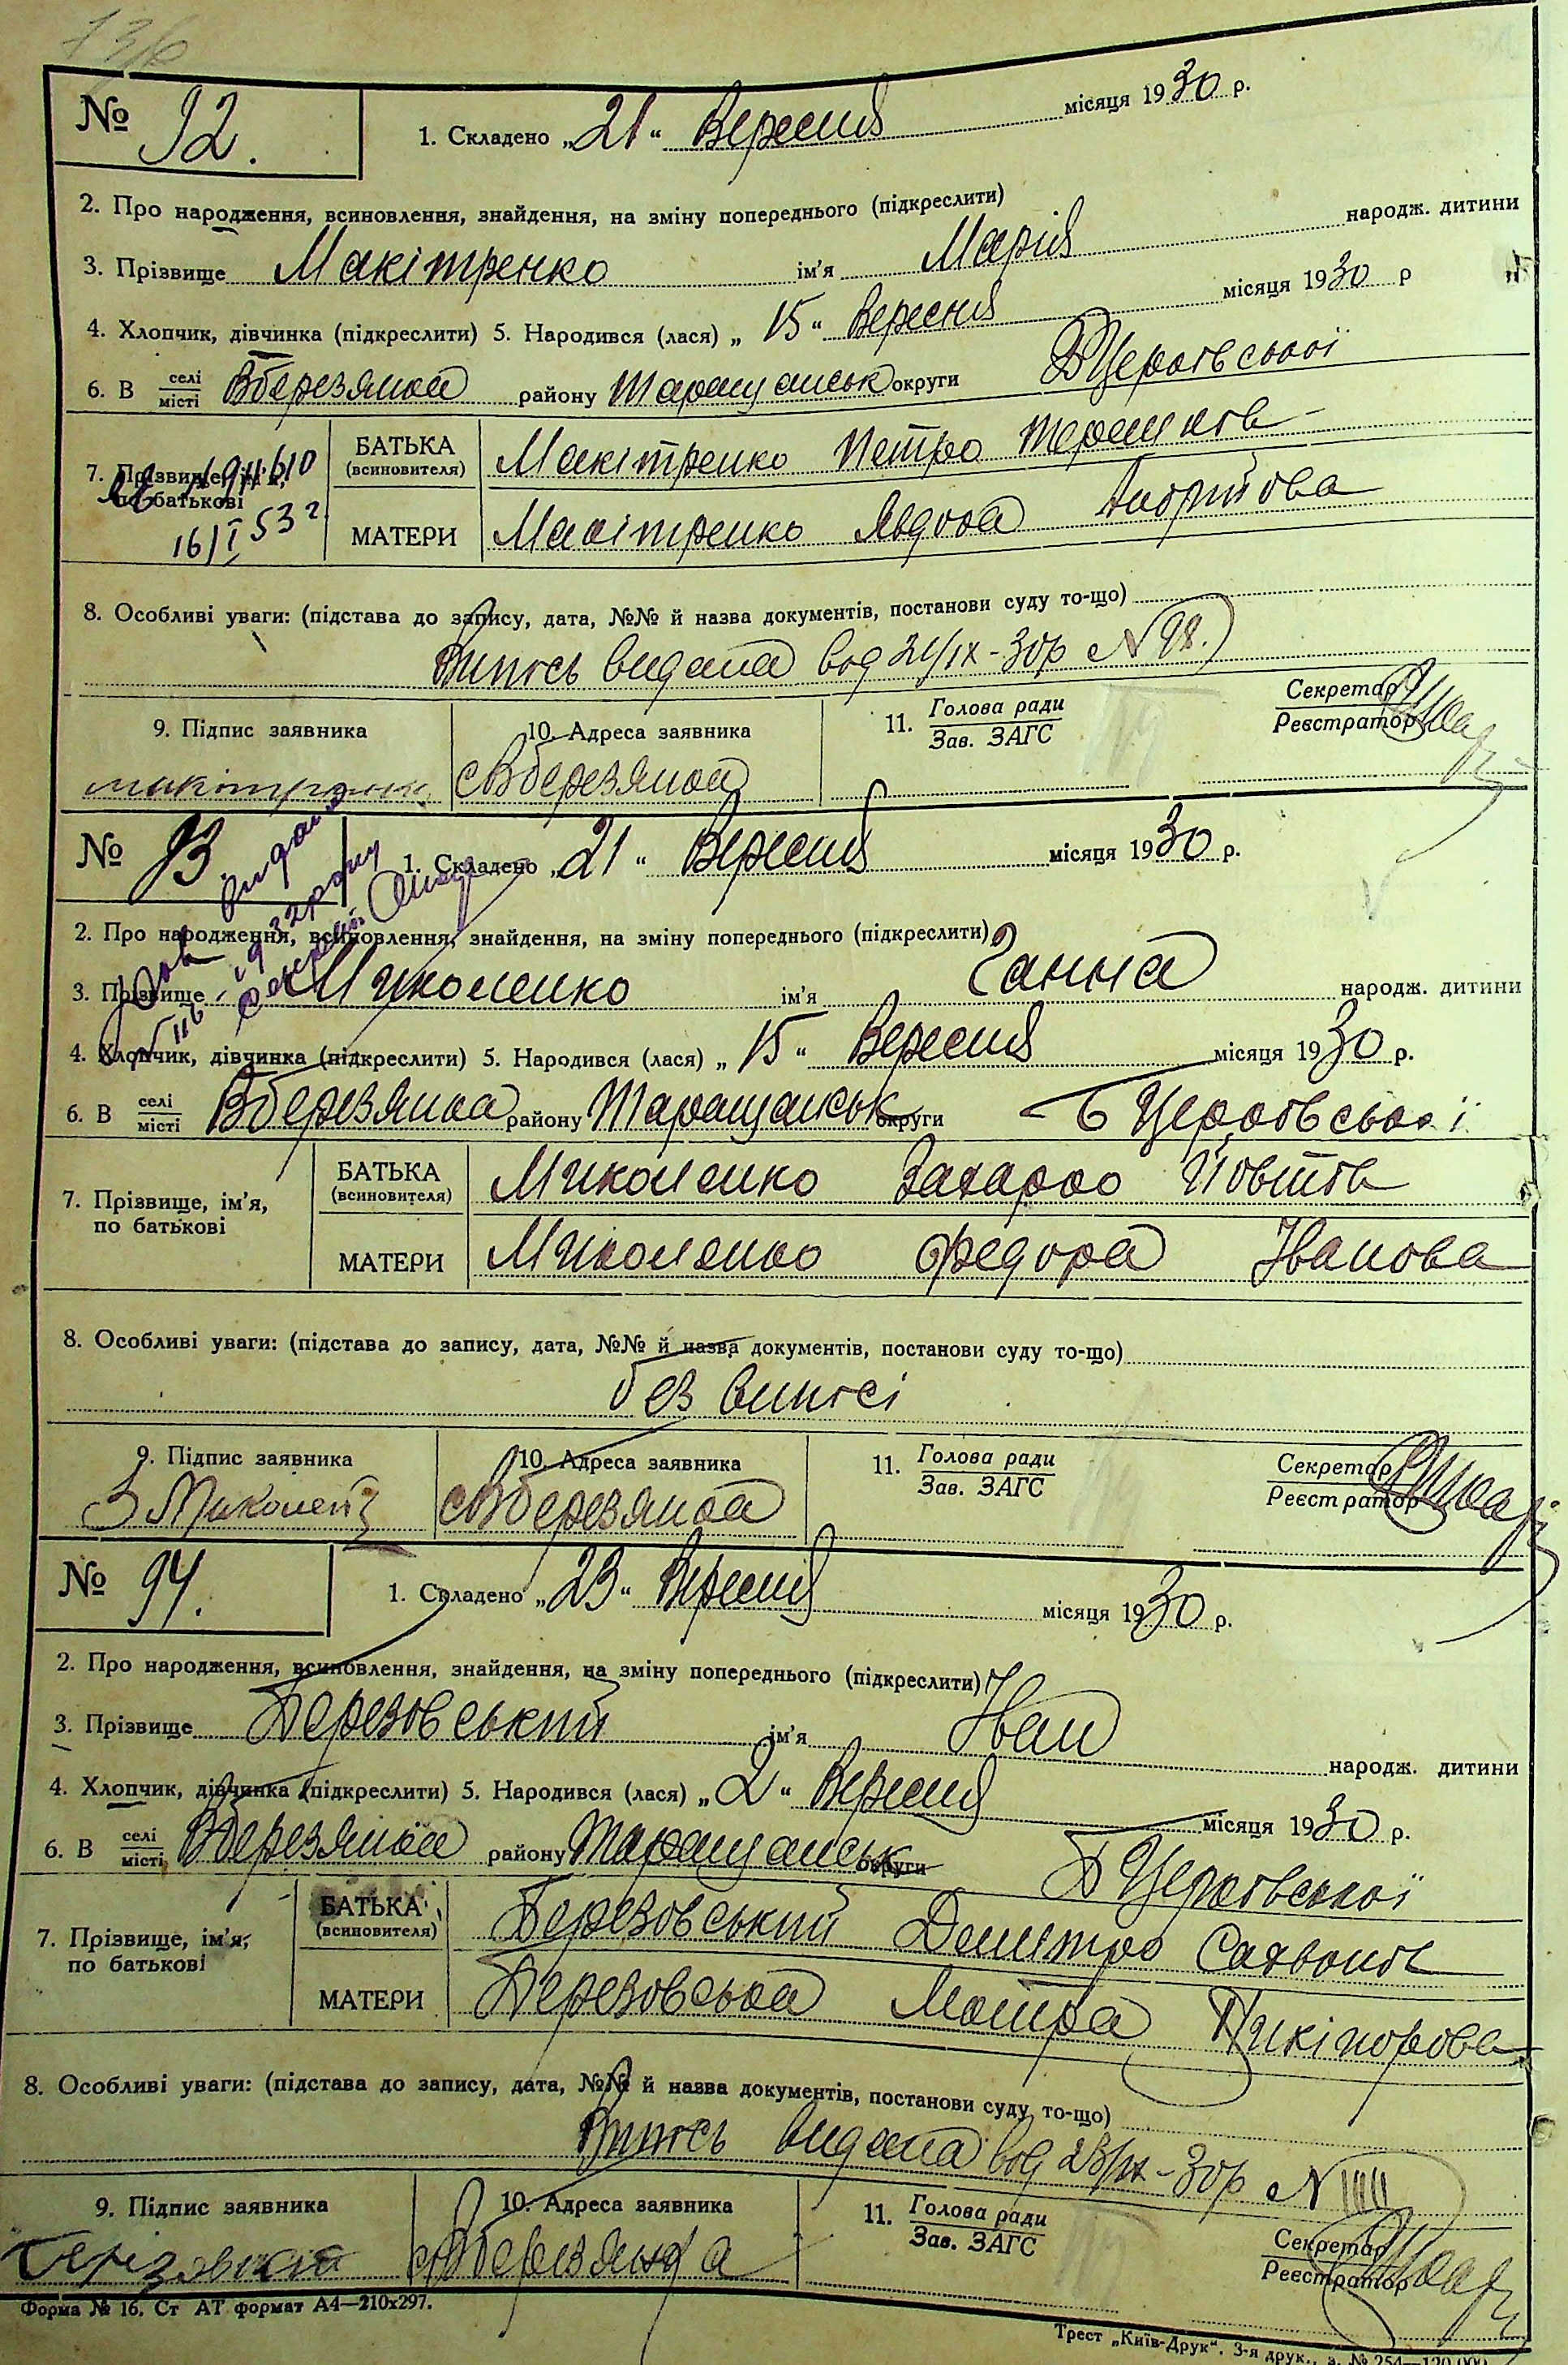 № 92.
1. Складено „21“ Вересня місяця 1930 р.
2. Про народження, всиновлення, знайдення, на зміну попереднього (підкреслити)
3. Прізвище Макітренко ім'я Марія народж. дитини
4. Хлопчик, дівчинка (підкреслити) 5. Народився (лася) „15“ Вересня місяця 1930 р
6. В селі місті Вберезянка району Таращанськ округи БЦерківської
7. Прізвище, ім'я, по батькові
16/I 53 г.
БАТЬКА (всиновителя) Макітренко Петро
МАТЕРИ Макітренко Явдоха
8. Особливі уваги: (підстава до запису, дата, №№ й назва документів, постанови суду то-що)
Випись видана від 21/ІХ-30р N 98.
9. Підпис заявника
10. Адреса заявника
11. Голова ради Зав. ЗАГС
Секретар Реєстратор
макітренко
сВберезянка
№ 93.
1. Складено „21“ Вересня місяця 1930 р.
2. Про народження, всиновлення, знайдення, на зміну попереднього (підкреслити)
3. Прізвище Миколенко ім'я Ганна народж. дитини
4. Хлопчик, дівчинка (підкреслити) 5. Народився (лася) „15“ Вересня місяця 1930 р.
6. В селі місті Вберезянка району Таращанськ округи БЦерківської
7. Прізвище, ім'я, по батькові
БАТЬКА (всиновителя) Миколенко Захарко
МАТЕРИ Миколенко Федора Іванова
8. Особливі уваги: (підстава до запису, дата, №№ й назва документів, постанови суду то-що)
без виписі
9. Підпис заявника
10. Адреса заявника
11. Голова ради Зав. ЗАГС
Секретар Реєстратор
З Миколенко
сВберезянка
№ 94.
1. Складено „23“ Вересня місяця 1930 р.
2. Про народження, всиновлення, знайдення, на зміну попереднього (підкреслити)
3. Прізвище Березовський ім'я Іван народж. дитини
4. Хлопчик, дівчинка (підкреслити) 5. Народився (лася) „2“ Вересня місяця 1930 р.
6. В селі місті Вберезянка району Таращанськ округи БЦерківської
7. Прізвище, ім'я, по батькові
БАТЬКА (всиновителя) Березовський Дмитро
МАТЕРИ Березовська Мотря Никіпорова
8. Особливі уваги: (підстава до запису, дата, №№ й назва документів, постанови суду то-що)
Випись видана від 23/ІХ-30р N
9. Підпис заявника
10. Адреса заявника
11. Голова ради Зав. ЗАГС
Секретар Реєстратор
сВберезянка
Форма № 16. Ст АТ формат А4—210х297.
Трест „Київ-Друк“. 3-я друк., з. № 254—120.000